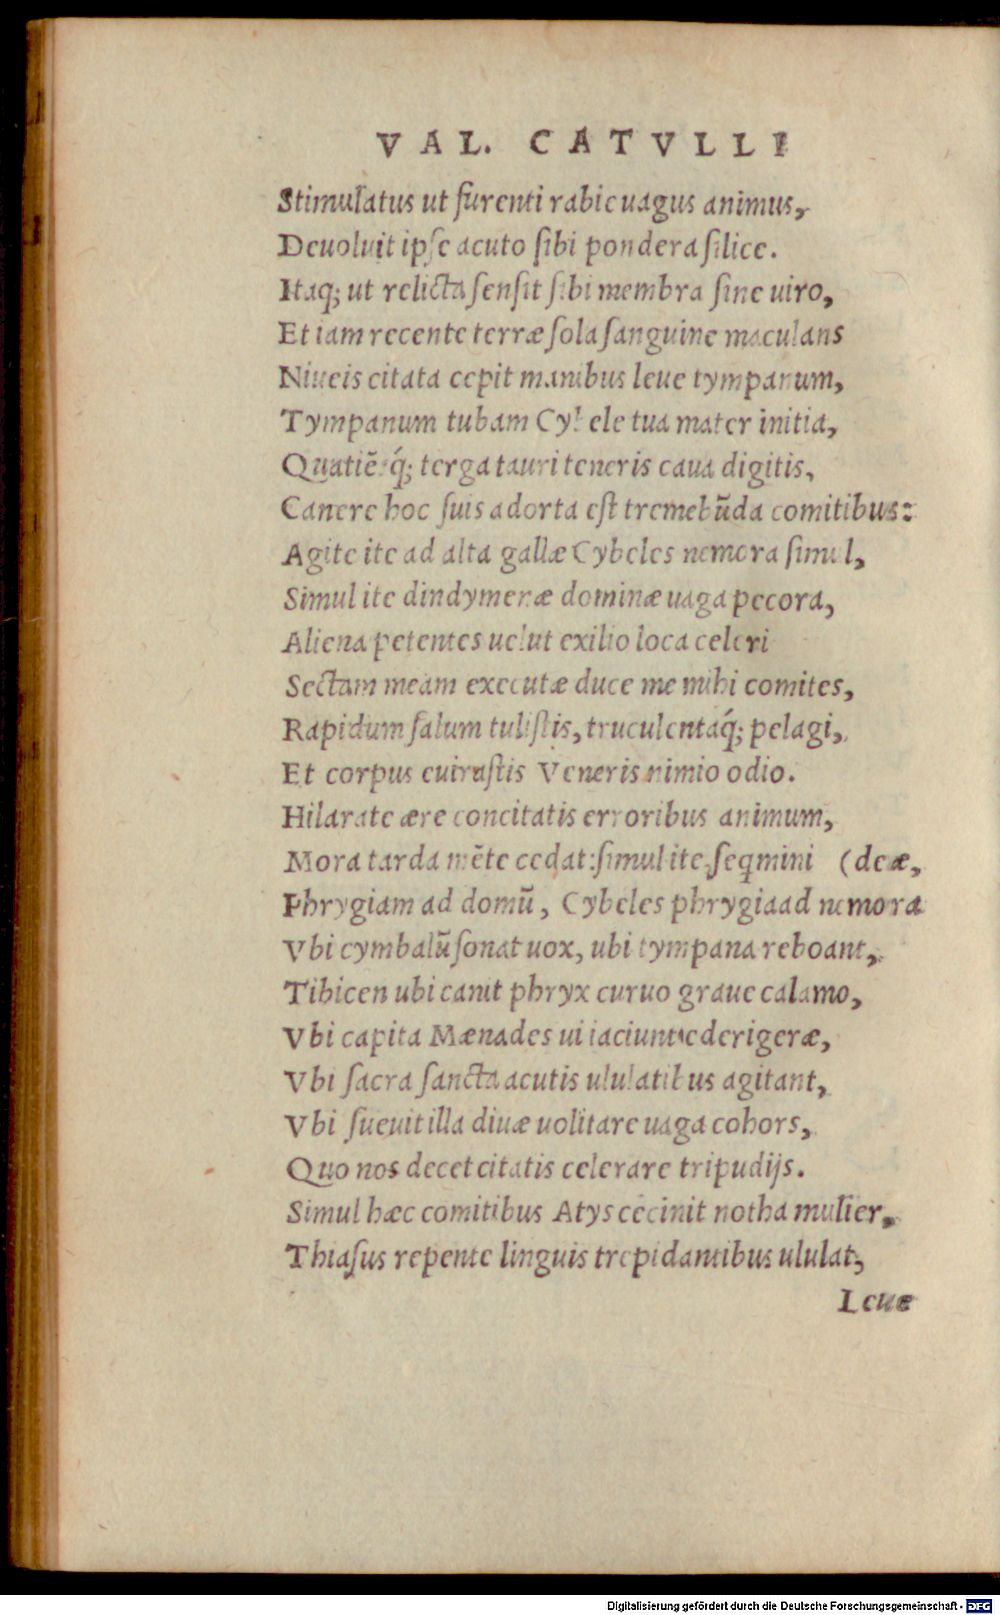 VAL. CATVLLI
Stimulatus ut furenti rabie uagus animus,
Deuoluit ipse acuto sibi pondera silice.
Itaq; ut relicta sensit sibi membra sine uiro,
Et iam recente terræ sola sanguine maculans
Niueis citata cepit manibus leue tympanum,
Tympanum tubam Cybele tua mater initia,
Quatiẽsq́; terga tauri teneris caua digitis,
Canere hoc suis adorta est tremebũda comitibus:
Agite ite ad alta gallæ Cybeles nemora simul,
Simul ite dindymenæ dominæ uaga pecora,
Aliena petentes uelut exilio loca celeri
Sectam meam executæ duce me mihi comites,
Rapidum salum tulistis, truculentaq́; pelagi,
Et corpus euirastis Veneris nimio odio.
Hilarate ære concitatis erroribus animum,
Mora tarda mẽte cedat: simul ite, seq̃mini (deæ,
Phrygiam ad domũ, Cybeles phrygia ad nemora
Vbi cymbalũ sonat uox, ubi tympana reboant,
Tibicen ubi canit phryx curuo graue calamo,
Vbi capita Mænades ui iaciunt ederigeræ,
Vbi sacra sancta acutis ululatibus agitant,
Vbi sueuit illa diuæ uolitare uaga cohors,
Quo nos decet citatis celerare tripudijs.
Simul hæc comitibus Atys cecinit notha mulier,
Thiasus repente linguis trepidantibus ululat,
Leue
Digitalisierung gefördert durch die Deutsche Forschungsgemeinschaft - DFG